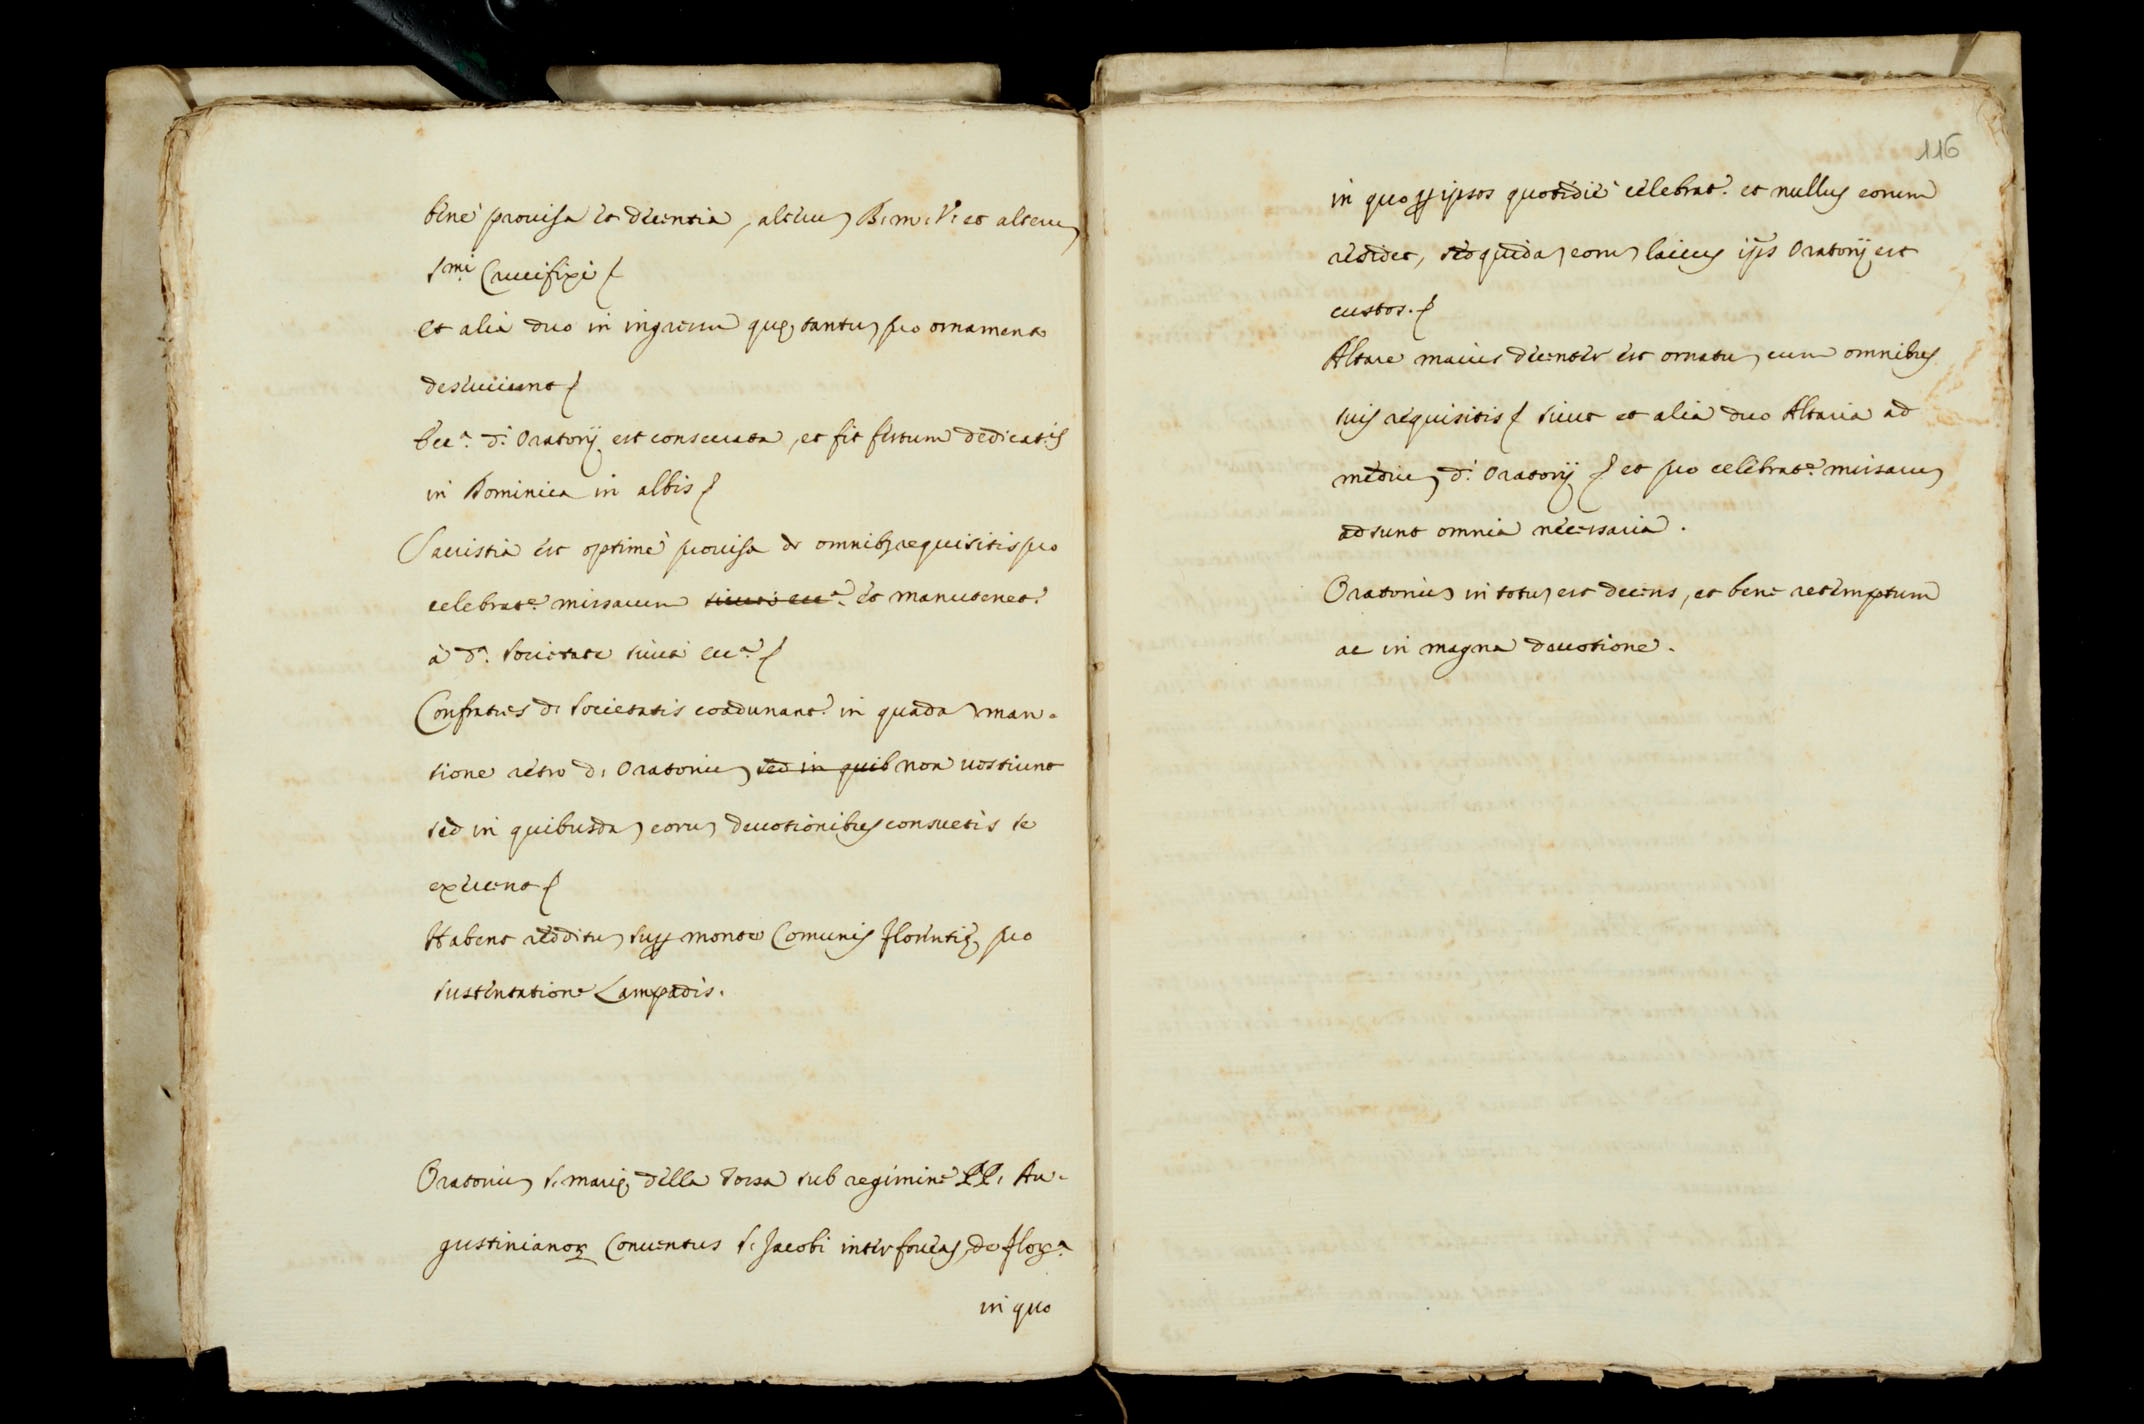 bene provisa et decentia, alterum B. M. V. et alterum
S.mi Crucifixi
et alia duo in ingressu quę tantum pro ornamento
deserviunt
Ecc.a d.i Oratorij est consecrata, et fit festum dedicat.is
in Dominica in albis
Sacristia est optime provisa de omnibus requisitis pro
celebrat.e missarum et manutenet.r
à d.a Societate
Confratres d.i Societatis coadunant.r in quadam man-
sione retro d. Oratorium sed in quib non vestiunt
sed in quibusdam eorum devotionibus consuetis se
exercent
Habent redditum super monte Comunis Florentię pro
sustentatione Lampadis.
Oratorium S. Marię della Tossa sub regimine PP. Au-
gustinianorum Conventus S. Jacobi inter foveas de Flor.a
in quo
116
in quo per ipsos quotidie celebrat.r et nullus eorum
residet, sed quidam eorum laicus ips Oratorij est
custos.
Altare maius decenter est ornatum cum omnibus
suis requisitis sunt et alia duo Altaria ad
medium d.i Oratorij et pro celebrat.e missarum
adsunt omnia necessaria.
Oratorium in totum est decens, et bene retemptum
ac in magna devotione.